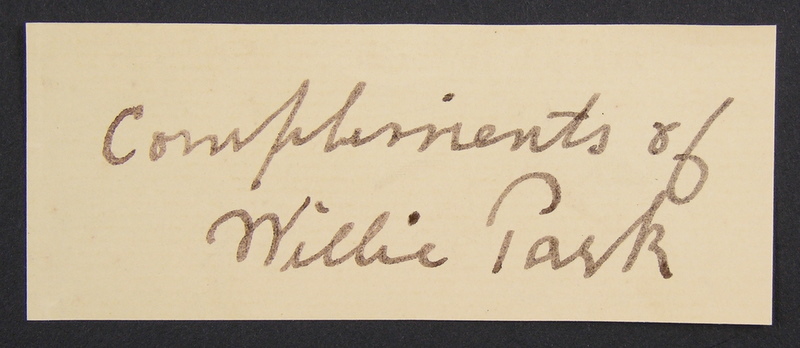 Compliments of
Willie Park